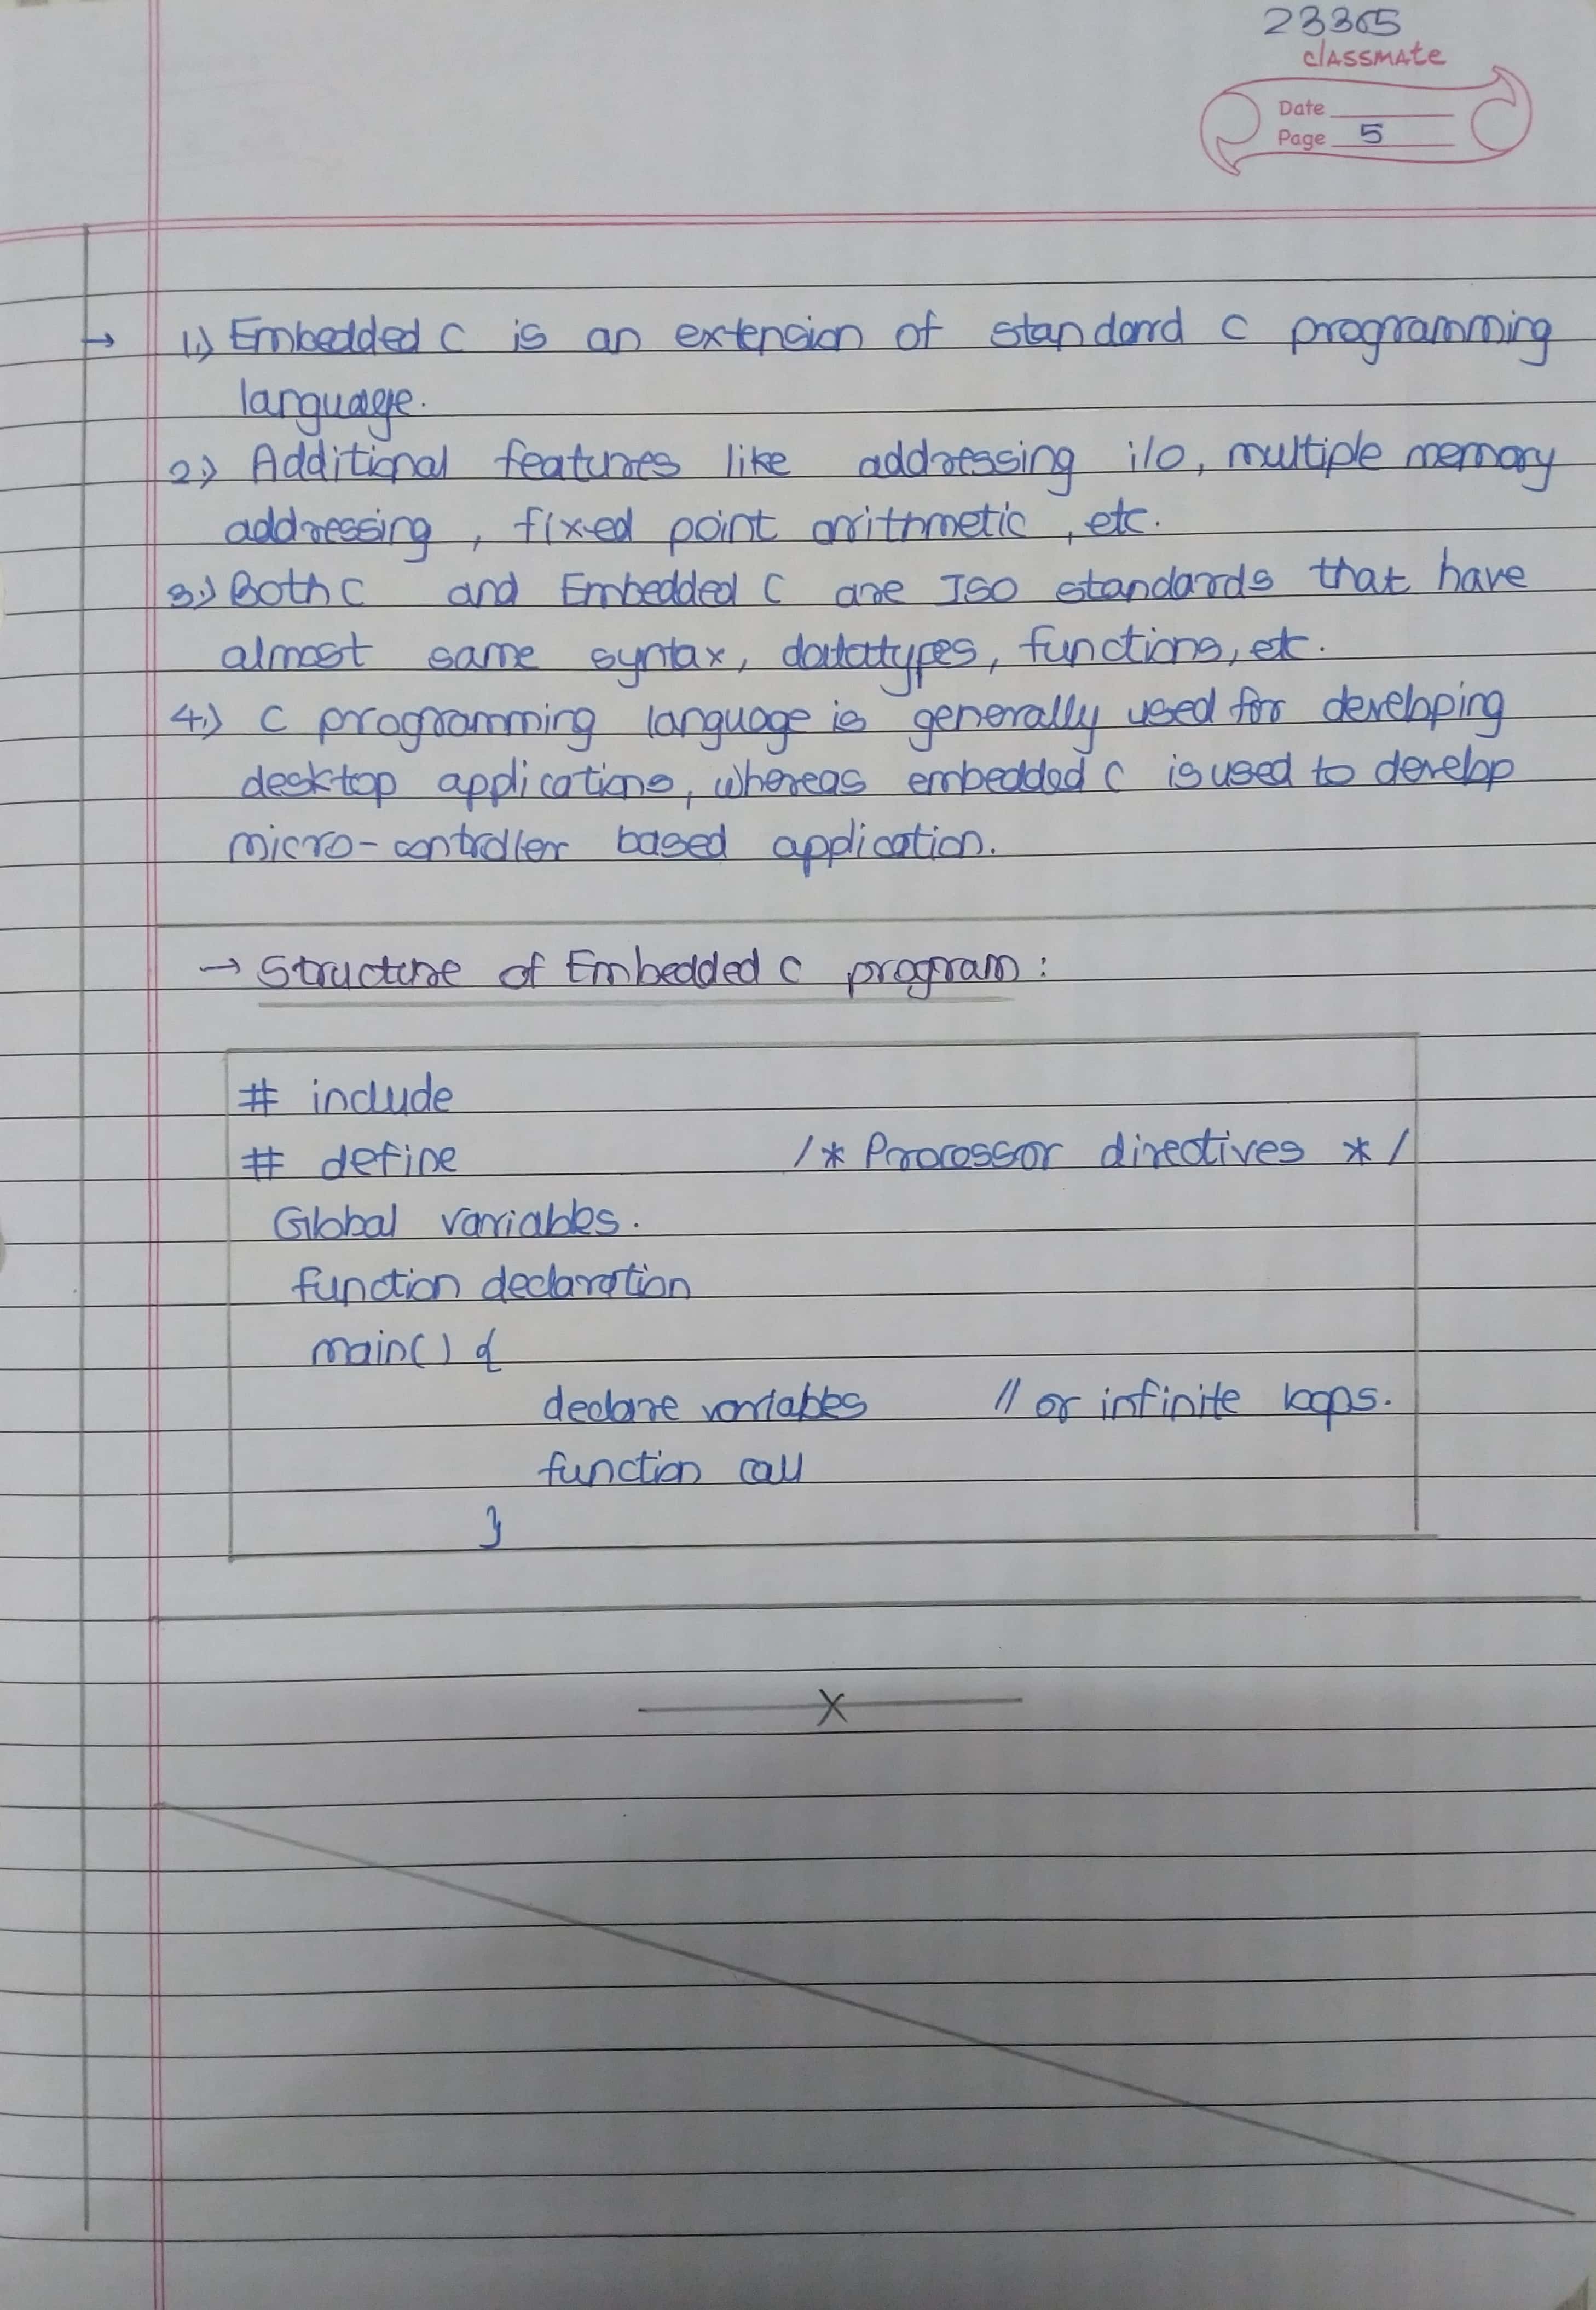 23365
classmate
Date
Page 5
→ 1.) Embedded C is an extension of standard C programming
language.
2.) Additional features like addressing i/o, multiple memory
addressing, fixed point arithmetic, etc.
3.) Both C and Embedded C are ISO standards that have
almost same syntax, datatypes, functions, etc.
4.) C programming language is generally used for developing
desktop applications, whereas embedded C is used to develop
micro-controller based application.
→ Structure of Embedded C program:
# include
# define /* Processor directives */
Global variables.
function declaration
main() {
declare variables // or infinite loops.
function call
}
X